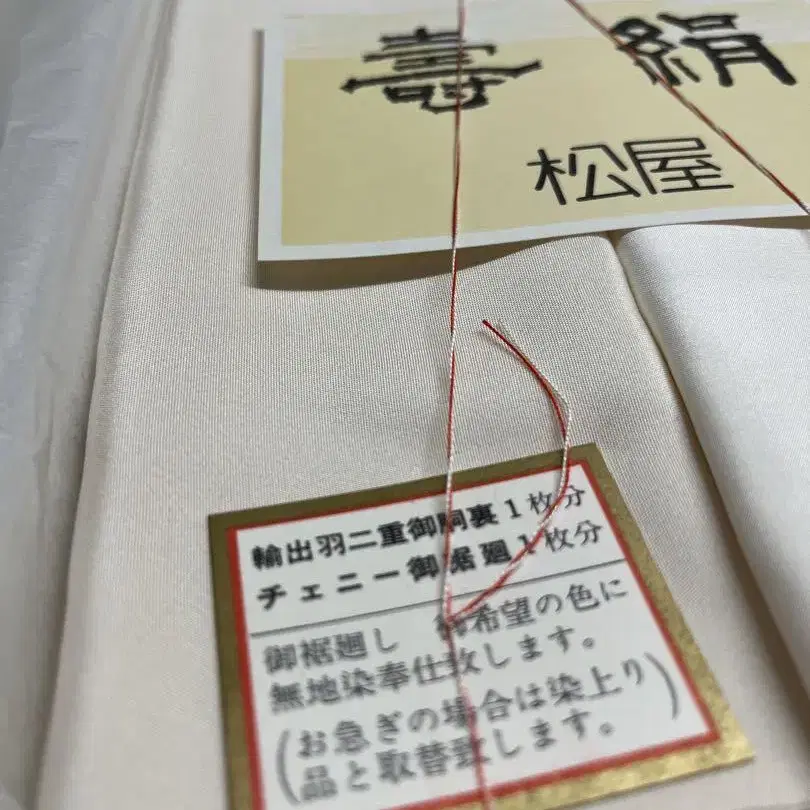 壽 絹
松屋
輸出羽二重御胴裏1枚分
チェニー御裾廻1枚分
御裾廻し 御希望の色に
無地染奉仕致します。
(お急ぎの場合は染上り
品と取替致します。)